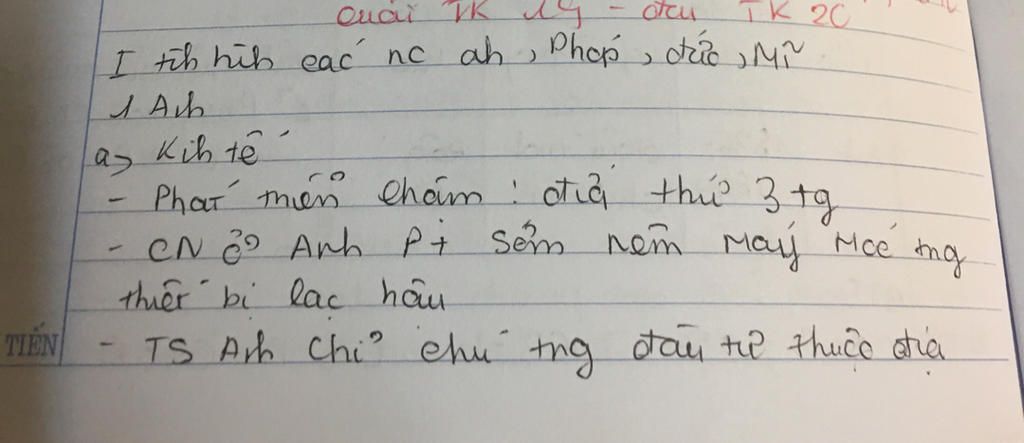 cuối TK 19 - đầu TK 20
I tih hih các nc ah, Pháp, đức, Mĩ
1 Anh
a> Kih tế
- Phát triển chậm: đứg thứ 3 tg
- CN ở Anh Pt sớm nên máy móc trng
thiết bị lạc hậu
TIẾN
- TS Anh chỉ chú trng đầu tư thuộc địa